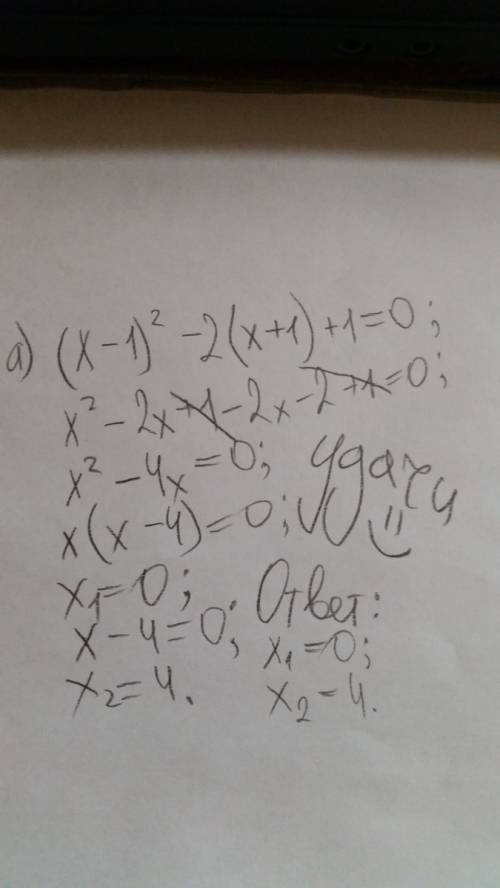 а) (x-1)² -2(x+1)+1=0;
x² - 2x+1-2x-2+1=0;
x² - 4x=0; Удачи
x(x-4)=0;
x₁=0; Ответ:
x-4=0; x₁=0;
x₂=4. x₂=4.